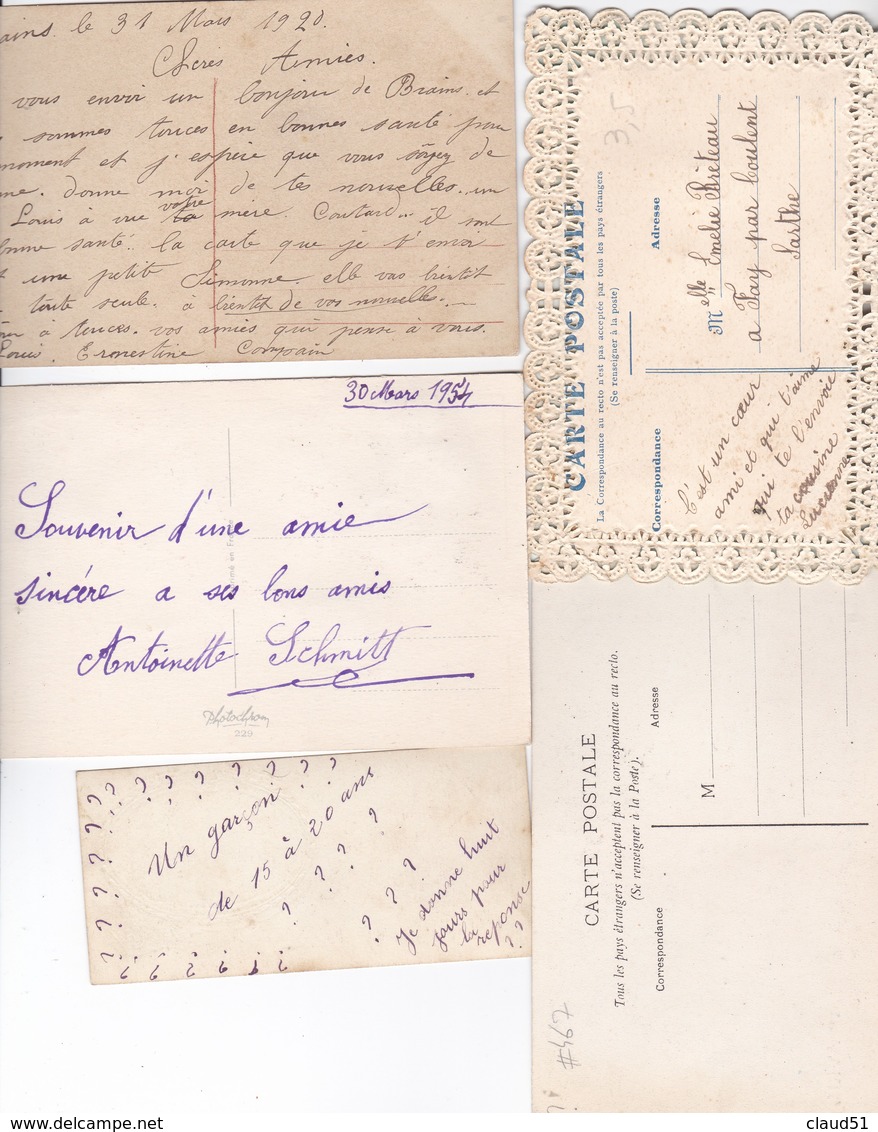 ains. le 31 Mars 1920.
Chères Amies.
vous envoir un bonjour de Brains. et
sommes touces en bonnes santé pour
moment et j'espère que vous soyez de
me. donne moi de tes nouvelles. un
Louis à vue votre mère. Coutard... il sont
bonne santé. la carte que je t'envoi
t une petit Simonne. elle vas bientôt
toute seule. à bientôt de vos nouvelle.
à touces. vos amies qui pense à vous.
Louis. Ernestine Compain
30 Mars 1954
Souvenir d'une amie
sincére a ses bons amis
Antoinette Schmitt
Photochrom
229
Un garçon
de 15 à 20 ans
? ? ? ?
? ? ?
Je donne huit
jours pour
la reponse
? ?
CARTE POSTALE
La Correspondance au recto n'est pas acceptée par tous les pays étrangers
(Se renseigner à la poste)
Correspondance
Adresse
3,5
Melle Emélie Bréteau
a Fay par Coulent
Sarthe
C'est un cœur
ami et qui t'aime
qui te l'envoie
ta cousine
Lucienne
CARTE POSTALE
Tous les pays étrangers n'acceptent pas la correspondance au recto.
(Se renseigner à la Poste).
Correspondance
Adresse
M
#467
delcampe.net
claud51